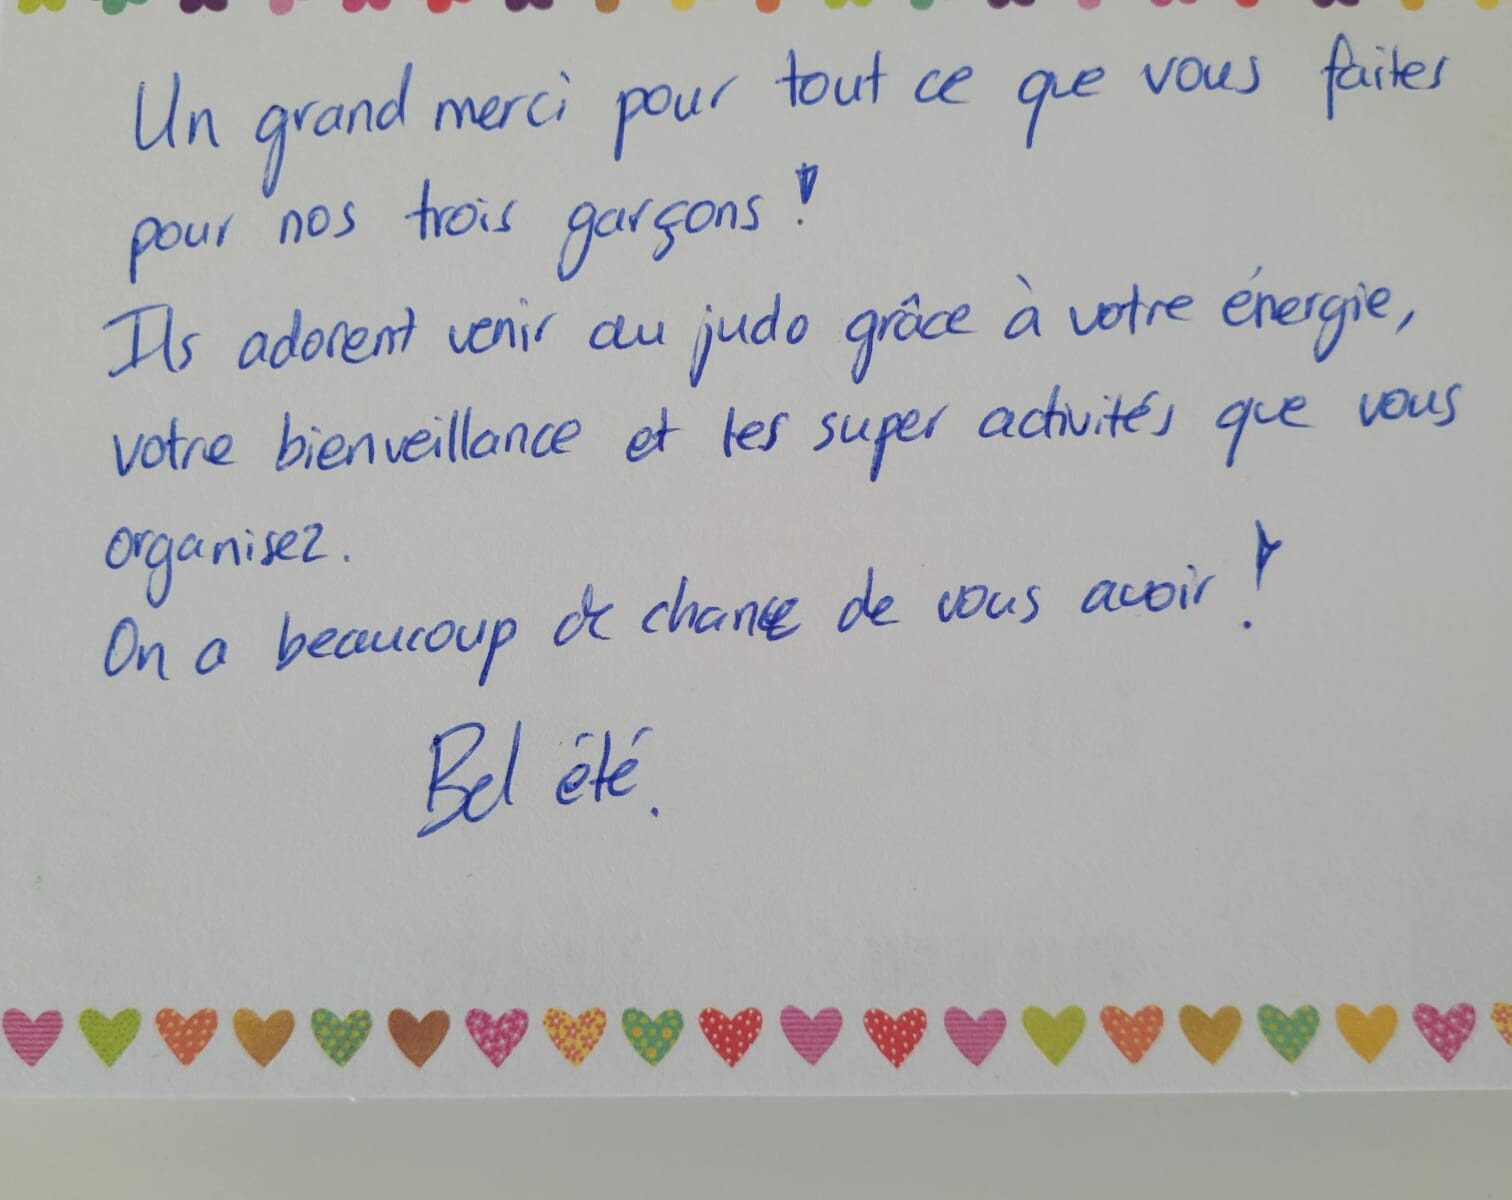 Un grand merci pour tout ce que vous faites
pour nos trois garçons !
Ils adorent venir au judo grâce à votre énergie,
votre bienveillance et les super activités que vous
organisez.
On a beaucoup de chance de vous avoir !
Bel été.